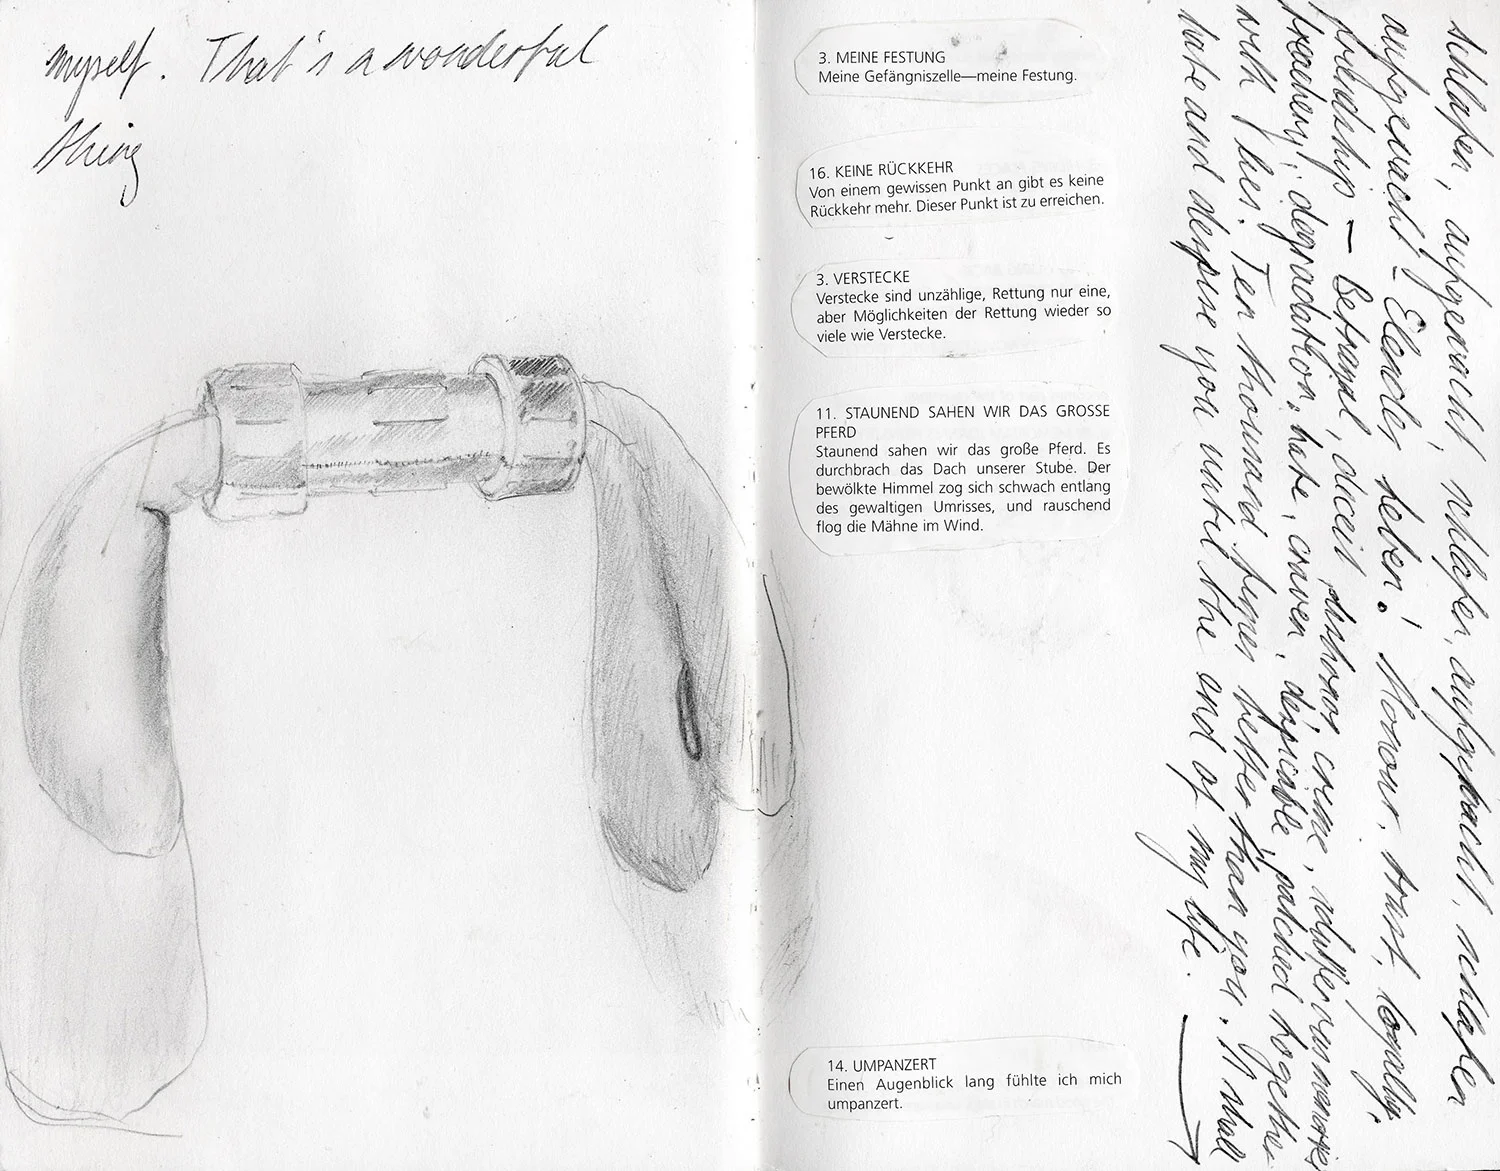 myself. That's a wonderful
thing
3. MEINE FESTUNG
Meine Gefängniszelle—meine Festung.
16. KEINE RÜCKKEHR
Von einem gewissen Punkt an gibt es keine
Rückkehr mehr. Dieser Punkt ist zu erreichen.
3. VERSTECKE
Verstecke sind unzählige, Rettung nur eine,
aber Möglichkeiten der Rettung wieder so
viele wie Verstecke.
11. STAUNEND SAHEN WIR DAS GROSSE
PFERD
Staunend sahen wir das große Pferd. Es
durchbrach das Dach unserer Stube. Der
bewölkte Himmel zog sich schwach entlang
des gewaltigen Umrisses, und rauschend
flog die Mähne im Wind.
14. UMPANZERT
Einen Augenblick lang fühlte ich mich
umpanzert.
schlafen, aufgewacht, schlafen, aufgewacht, schlafen
aufgewacht – Elendes Leben! Honour, trust, loyalty,
friendship — Betrayal, deceit, dishonor, crime,
treachery, degradation, hate, craven, despicable, patched together
with lies. Ten thousand times better than you. I'll shall
hate and despise you until the end of my life.